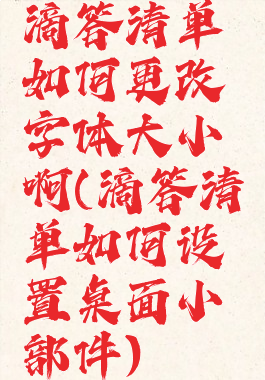 滴答清单
如何更改
字体大小
啊(滴答清
单如何设
置桌面小
部件)